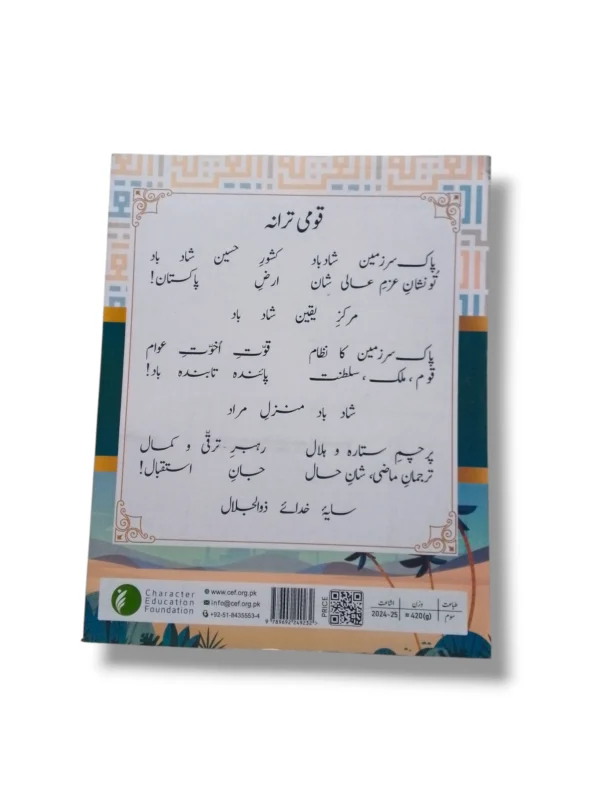 قومی ترانہ
پاک سرزمین شاد باد کشورِ حسین شاد باد
تُو نشانِ عزمِ عالی شان ارضِ پاکستان!
مرکزِ یقین شاد باد
پاک سرزمین کا نظام قوّتِ اُخوّتِ عوام
قوم، ملک، سلطنت پائندہ تابندہ باد!
شاد باد منزلِ مراد
پرچمِ ستارہ و ہلال رہبرِ ترقّی و کمال
ترجمانِ ماضی، شانِ حال جانِ استقبال!
سایۂ خدائے ذوالجلال
Character
Education
Foundation
www.cef.org.pk
info@cef.org.pk
+92-51-8435553-4
PRICE
اشاعت وزن طباعت
2024-25 420(g) سوم